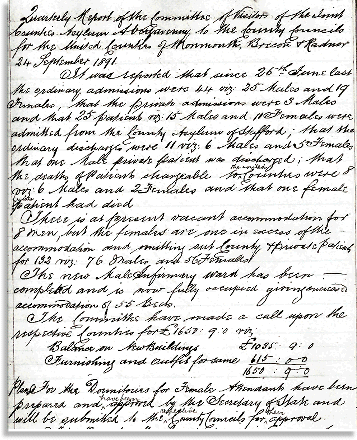 Quarterly Report of the Committee of Visitors of the Joint
Counties Asylum Abergavenny to the County Councils
for the United Counties of Monmouth, Brecon & Radnor
24 September 1891.
It was reported that since 25th June last
the ordinary admissions were 44 viz: 25 Males and 19
Females, that the private admissions were 3 Males
and that 25 patients viz: 15 Males and 10 Females were
admitted from the County Asylum of Stafford; that the
ordinary discharges were 11 viz: 6 Males and 5 Females
that one Male private patient was discharged; that
the deaths of Patients chargeable to the Counties were 8
viz: 6 Males and 2 Females and that one female
patient had died
There is at present vacant accommodation for
8 men, but the females are one in excess of the
accommodation and omitting out County & Private Patients
for 132 viz: 76 Males and 56 Females
The new Male Infirmary Ward has been
completed and is now fully occupied giving
accommodation of 55 Beds.
The Committee have made a call upon the
respective Counties for £1650: 9: 0 viz:
Balance on New Buildings £1035: 9: 0
Furnishing and outfit for same 615: 0: 0
1650: 9: 0
Plans for the Dormitories for Female Attendants have been
prepared and approved by the Secretary of State and
will be submitted to the respective County Councils for their approval